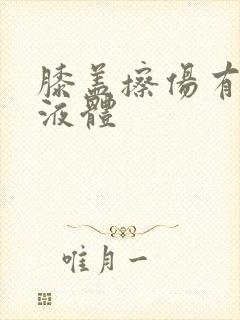 膝盖擦傷有
液體
唯月一